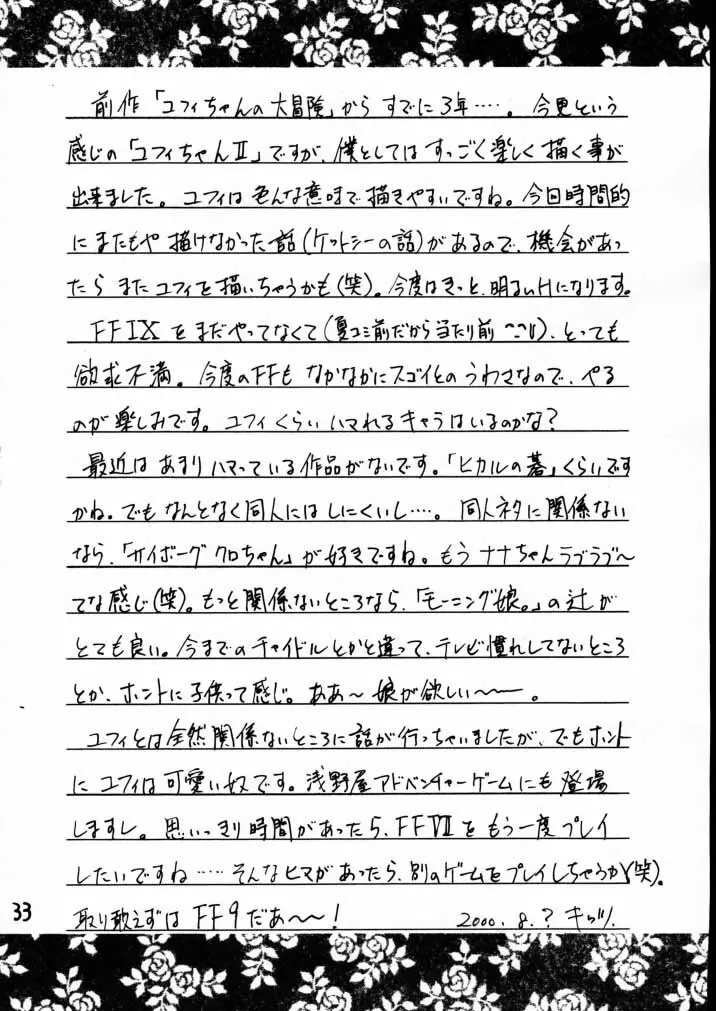 前作「ユフィちゃんの大冒険」から すでに3年‥‥。今更という
感じの「ユフィちゃんⅡ」ですが、僕としてはすっごく楽しく描く事が
出来ました。ユフィは色んな意味で描きやすいですね。今回時間的
にまたもや描けなかった話(ケットシーの話)があるので、機会があっ
たら またユフィを描いちゃうかも(笑)。今度はきっと、明るいHになります。
FFⅨをまだやってなくて(夏コミ前だから当たり前)、とっても
欲求不満。今度のFFも なかなかにスゴイとのうわさなので、やる
のが楽しみです。ユフィくらいハマれるキャラはいるのかな?
最近は あまりハマっている作品がないです。「ヒカルの碁」くらいです
かね。でもなんとなく同人にはしにくいし‥‥。同人ネタに関係ない
なら、「サイボーグクロちゃん」が好きですね。もうナナちゃんラブラブ〜
てな感じ(笑)。もっと関係ないところなら、「モーニング娘。」の辻が
とても良い。今までのチャイドルとかと違って、テレビ慣れしてないところ
とか、ホントに子供って感じ。ああ〜娘が欲しい〜。
ユフィとは全然関係ないところに話が行っちゃいましたが、でもホント
にユフィは可愛い奴です。浅野屋アドベンチャーゲームにも登場
しますし。思いっきり時間があったら、FFⅦをもう一度プレイ
したいですね‥‥そんなヒマがあったら、別のゲームをプレイしちゃうか(笑)。
取り敢えずは FF9だあ〜〜! 2000.8.? キッツ
33